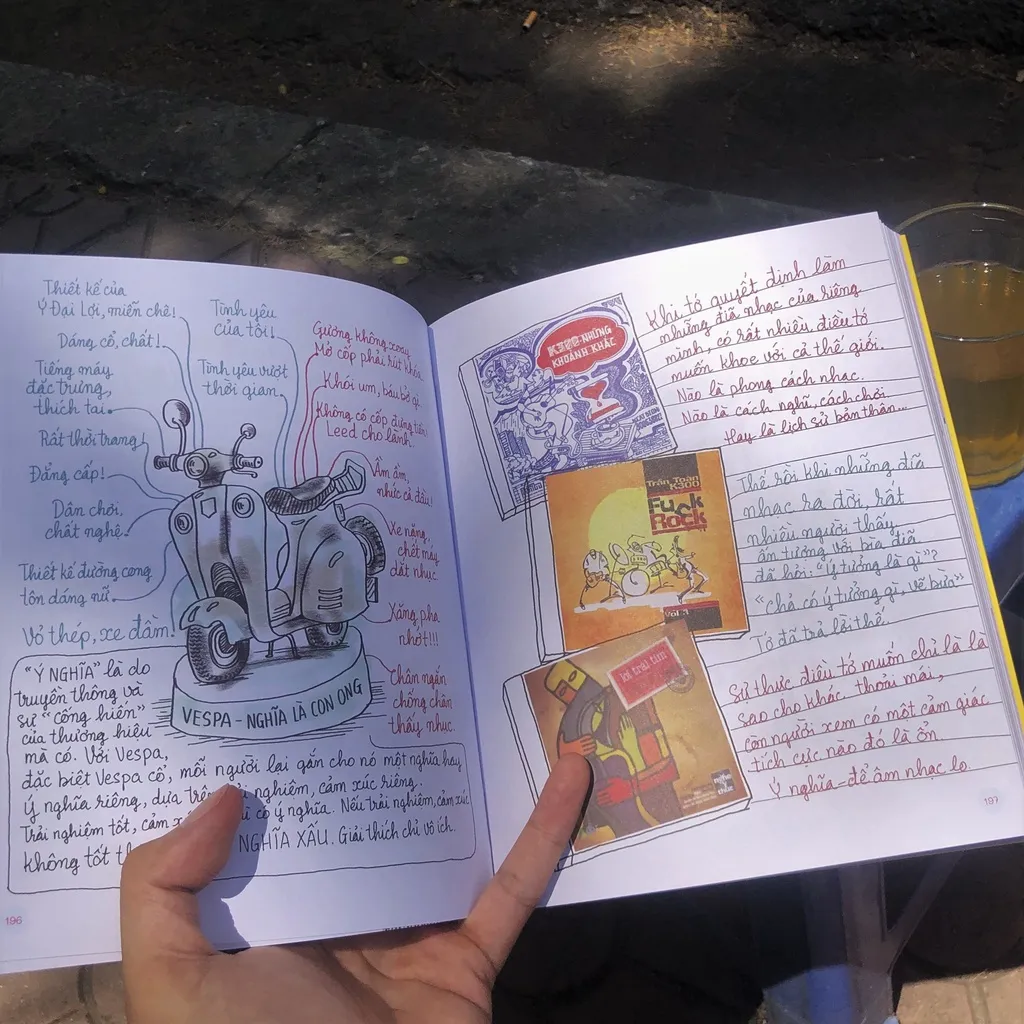 Thiết kế của
Ý Đại Lợi, miễn chê!
Dáng cổ, chất!
Tiếng máy
đặc trưng,
thích tai.
Rất thời trang!
Đẳng cấp!
Dân chơi,
chất nghệ.
Thiết kế đường cong
tôn dáng nữ.
Vỏ thép, xe đầm!
Tình yêu
của tôi!
Tình yêu vượt
thời gian.
Gương không xoay
Mở cốp phải rút khóa.
Khói um, báu bở gì.
Không có cốp đựng tiền
Leed cho lành.
Ầm ầm,
nhức cả đầu!
Xe nặng,
chết máy
dắt nhục
Xăng pha
nhớt!!!
Chân ngắn
chống chân
thấy nhục.
VESPA - NGHĨA LÀ CON ONG
"Ý NGHĨA" là do
truyền thông và
sự "cống hiến"
của thương hiệu
mà có. Với Vespa,
đặc biệt Vespa cổ, mỗi người lại gắn cho nó một nghĩa hay
ý nghĩa riêng, dựa trên nghiệm, cảm xúc riêng.
Trải nghiệm tốt, cảm có ý nghĩa. Nếu trải nghiệm, cảm xúc
không tốt NGHĨA XẤU. Giải thích chỉ vô ích.
196
K300-NHỮNG
KHOẢNH KHẮC
Trần Toàn
K300
Fuck
Rock
Vol.3
lời trái tim
Khi tớ quyết định làm
những đĩa nhạc của riêng
mình, có rất nhiều điều tớ
muốn khoe với cả thế giới.
Nào là phong cách nhạc.
Nào là cách nghĩ, cách chơi
Hay là lịch sử bản thân...
Thế rồi khi những đĩa
nhạc ra đời, rất
nhiều người thấy
ấn tượng với bìa đĩa
đã hỏi: "ý tưởng là gì"?
"chả có ý tưởng gì, vẽ bừa"
Tớ đã trả lời thế.
Sự thực điều tớ muốn chỉ là là
sao cho khác thoải mái,
còn người xem có một cảm giác
tích cực nào đó là ổn
Ý nghĩa - để âm nhạc lo.
197